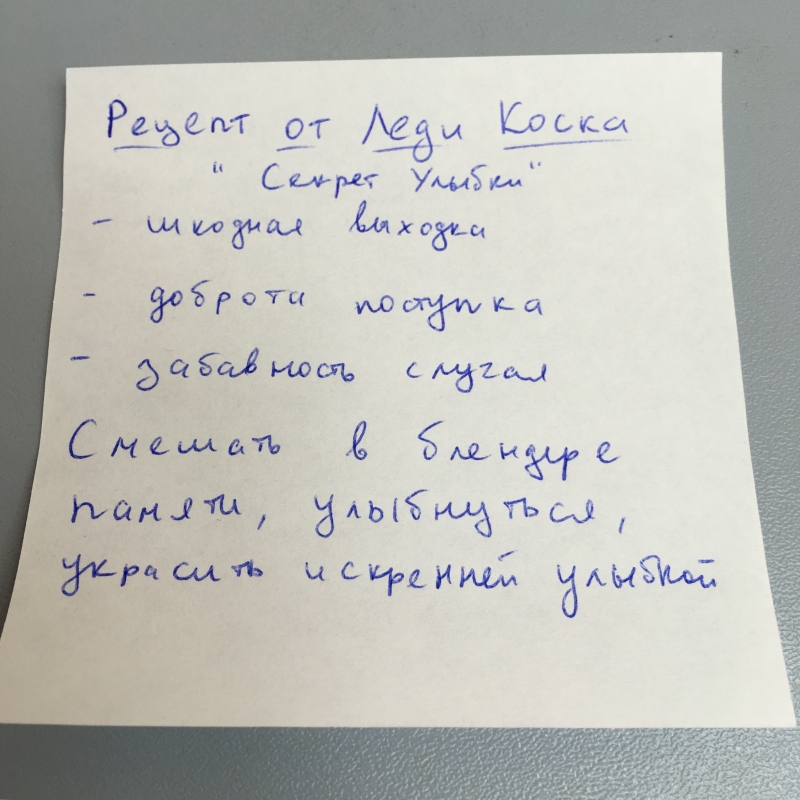 Рецепт от Леди Коска
"Секрет Улыбки"
- шкодная выходка
- доброта поступка
- забавность случая
Смешать в блендере
памяти, улыбнуться,
украсить искренней улыбкой